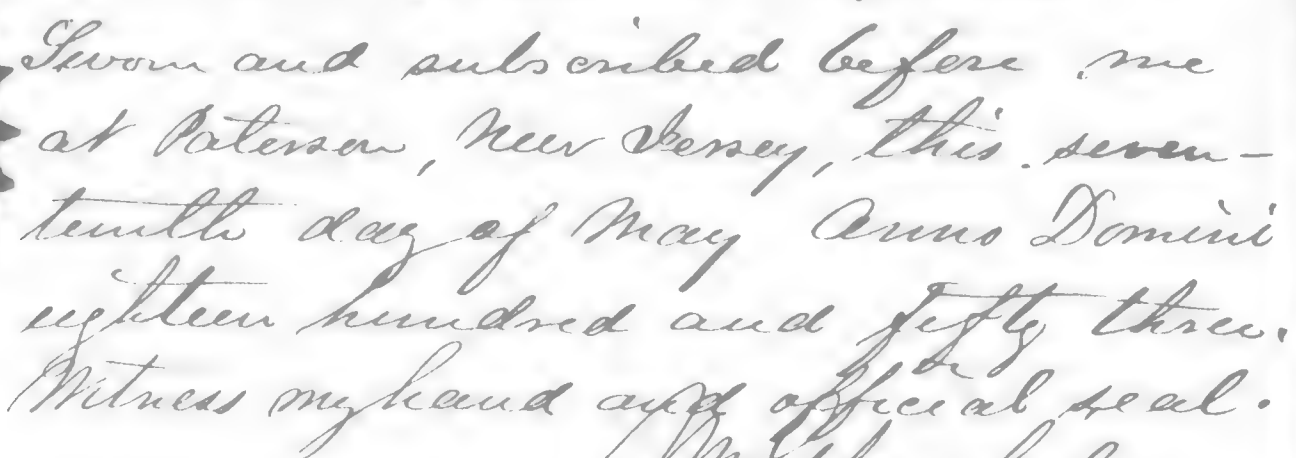 Sworn and subscribed before me
at Paterson, New Jersey, this seven-
teenth day of May Anno Domini
eighteen hundred and fifty three.
Witness my hand and official seal.